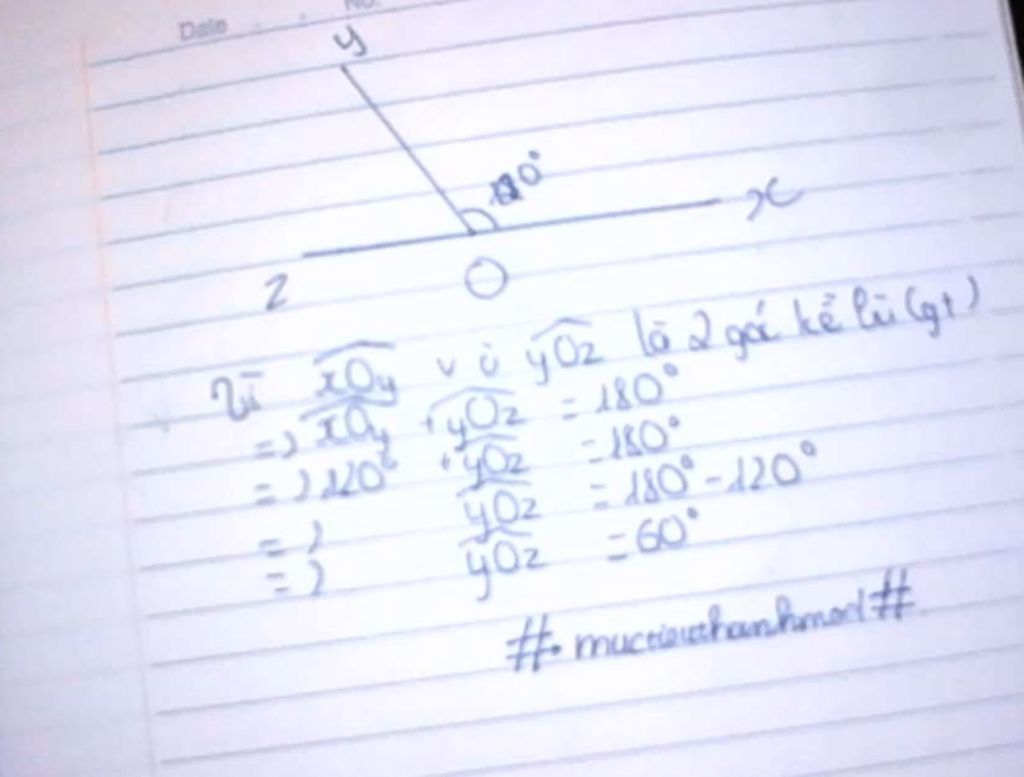 Date No.
y
120°
x
z
O
Vì xOy và yOz là 2 góc kề bù (gt)
=> xOy + yOz = 180°
=> 120° + yOz = 180°
=> yOz = 180° - 120°
=> yOz = 60°
#. muctieuthanhmod #